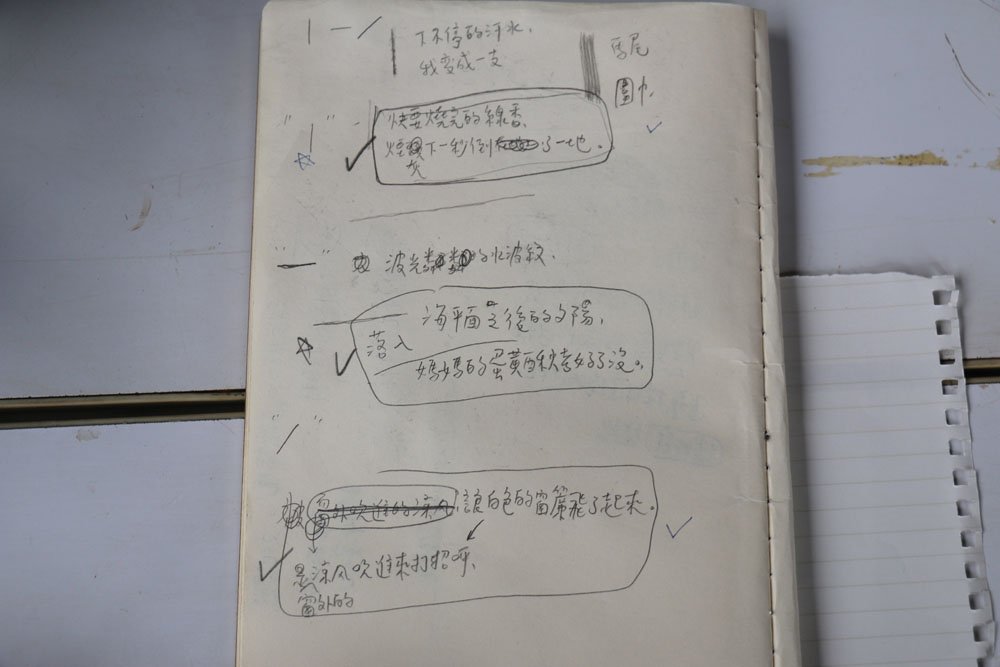 下不停的汗水,
我變成一支
馬尾
圍巾
快要燒完的線香,
煙灰下一秒倒了一地。
波光粼粼的水波紋,
海平面之後的夕陽,
落入
媽媽的蛋黃酥烤好了沒。
窗外吹進的涼風,讓白色的窗簾飛了起來。
是涼風吹進來打招呼,
窗外的